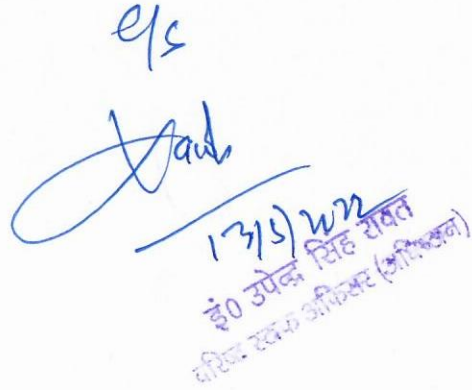 c/s
13/5/2022
इं० उपेन्द्र सिंह रावत
वरिष्ठ स्टाफ अफिसर (अधिष्ठान)